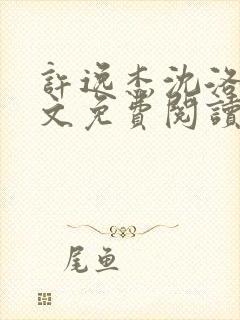 許逸杰沈洛
文免費閱讀
尾鱼